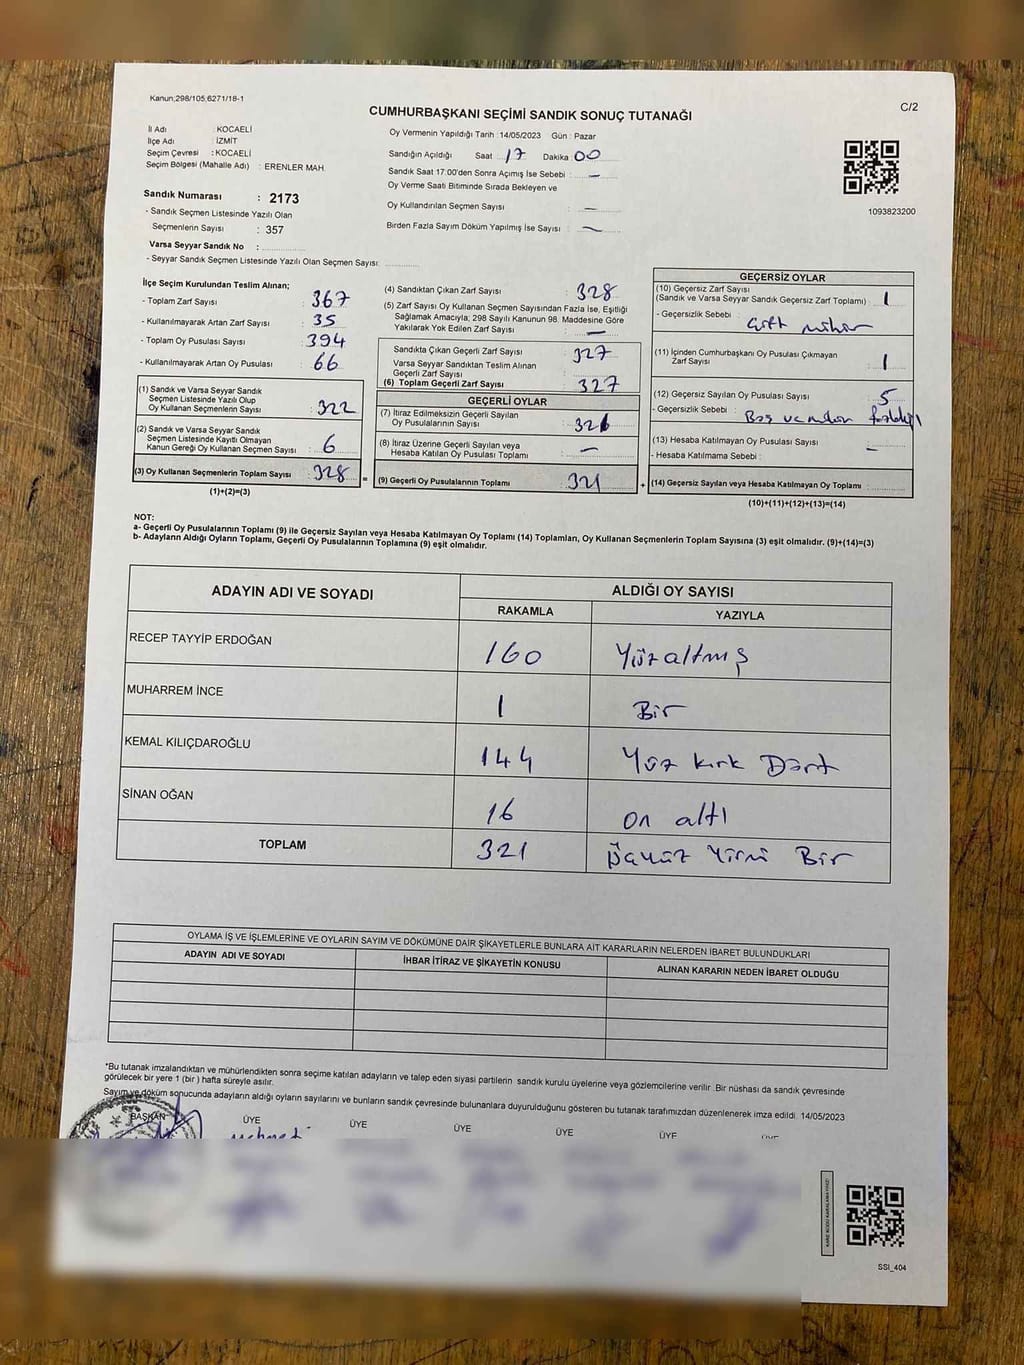 Kanun;298/105;6271/18-1
C/2
CUMHURBAŞKANI SEÇİMİ SANDIK SONUÇ TUTANAĞI
İl Adı : KOCAELİ
İlçe Adı : İZMİT
Seçim Çevresi : KOCAELİ
Seçim Bölgesi (Mahalle Adı) : ERENLER MAH.
Sandık Numarası : 2173
- Sandık Seçmen Listesinde Yazılı Olan
Seçmenlerin Sayısı : 357
Varsa Seyyar Sandık No :
- Seyyar Sandık Seçmen Listesinde Yazılı Olan Seçmen Sayısı:
Oy Vermenin Yapıldığı Tarih : 14/05/2023 Gün : Pazar
Sandığın Açıldığı Saat : 17 Dakika : 00
Sandık Saat 17:00'den Sonra Açımış İse Sebebi : —
Oy Verme Saati Bitiminde Sırada Bekleyen ve
Oy Kullandırılan Seçmen Sayısı : —
Birden Fazla Sayım Döküm Yapılmış İse Sayısı : —
1093823200
İlçe Seçim Kurulundan Teslim Alınan;
- Toplam Zarf Sayısı : 367
- Kullanılmayarak Artan Zarf Sayısı : 35
- Toplam Oy Pusulası Sayısı : 394
- Kullanılmayarak Artan Oy Pusulası : 66
(1) Sandık ve Varsa Seyyar Sandık
Seçmen Listesinde Yazılı Olup
Oy Kullanan Seçmenlerin Sayısı : 322
(2) Sandık ve Varsa Seyyar Sandık
Seçmen Listesinde Kayıtlı Olmayan
Kanun Gereği Oy Kullanan Seçmen Sayısı : 6
(3) Oy Kullanan Seçmenlerin Toplam Sayısı : 328 =
(1)+(2)=(3)
(4) Sandıktan Çıkan Zarf Sayısı : 328
(5) Zarf Sayısı Oy Kullanan Seçmen Sayısından Fazla İse, Eşitliği
Sağlamak Amacıyla; 298 Sayılı Kanunun 98. Maddesine Göre
Yakılarak Yok Edilen Zarf Sayısı : —
Sandıkta Çıkan Geçerli Zarf Sayısı : 327
Varsa Seyyar Sandıktan Teslim Alınan
Geçerli Zarf Sayısı :
(6) Toplam Geçerli Zarf Sayısı : 327
GEÇERLİ OYLAR
(7) İtiraz Edilmeksizin Geçerli Sayılan
Oy Pusulalarının Sayısı : 321
(8) İtiraz Üzerine Geçerli Sayılan veya
Hesaba Katılan Oy Pusulası Toplamı : —
(9) Geçerli Oy Pusulalarının Toplamı : 321 +
GEÇERSİZ OYLAR
(10) Geçersiz Zarf Sayısı
(Sandık ve Varsa Seyyar Sandık Geçersiz Zarf Toplamı) : 1
- Geçersizlik Sebebi : Çift mühür
(11) İçinden Cumhurbaşkanı Oy Pusulası Çıkmayan
Zarf Sayısı : 1
(12) Geçersiz Sayılan Oy Pusulası Sayısı : 5
- Geçersizlik Sebebi : Boş ve
(13) Hesaba Katılmayan Oy Pusulası Sayısı : —
- Hesaba Katılmama Sebebi :
(14) Geçersiz Sayılan veya Hesaba Katılmayan Oy Toplamı :
(10)+(11)+(12)+(13)=(14)
NOT:
a- Geçerli Oy Pusulalarının Toplamı (9) ile Geçersiz Sayılan veya Hesaba Katılmayan Oy Toplamı (14) Toplamları, Oy Kullanan Seçmenlerin Toplam Sayısına (3) eşit olmalıdır. (9)+(14)=(3)
b- Adayların Aldığı Oyların Toplamı, Geçerli Oy Pusulalarının Toplamına (9) eşit olmalıdır.
ADAYIN ADI VE SOYADI ALDIĞI OY SAYISI
RAKAMLA YAZIYLA
RECEP TAYYİP ERDOĞAN 160 Yüzaltmış
MUHARREM İNCE 1 Bir
KEMAL KILIÇDAROĞLU 144 Yüz kırk Dört
SİNAN OĞAN 16 on altı
TOPLAM 321 Üçyüz Yirmi Bir
OYLAMA İŞ VE İŞLEMLERİNE VE OYLARIN SAYIM VE DÖKÜMÜNE DAİR ŞİKAYETLERLE BUNLARA AİT KARARLARIN NELERDEN İBARET BULUNDUKLARI
ADAYIN ADI VE SOYADI İHBAR İTİRAZ VE ŞİKAYETİN KONUSU ALINAN KARARIN NEDEN İBARET OLDUĞU
*Bu tutanak imzalandıktan ve mühürlendikten sonra seçime katılan adayların ve talep eden siyasi partilerin sandık kurulu üyelerine veya gözlemcilerine verilir. Bir nüshası da sandık çevresinde
görülecek bir yere 1 (bir ) hafta süreyle asılır.
Sayım ve döküm sonucunda adayların aldığı oyların sayılarını ve bunların sandık çevresinde bulunanlara duyurulduğunu gösteren bu tutanak tarafımızdan düzenlenerek imza edildi. 14/05/2023
BAŞKAN ÜYE ÜYE ÜYE ÜYE ÜYE ÜYE
SSI_404